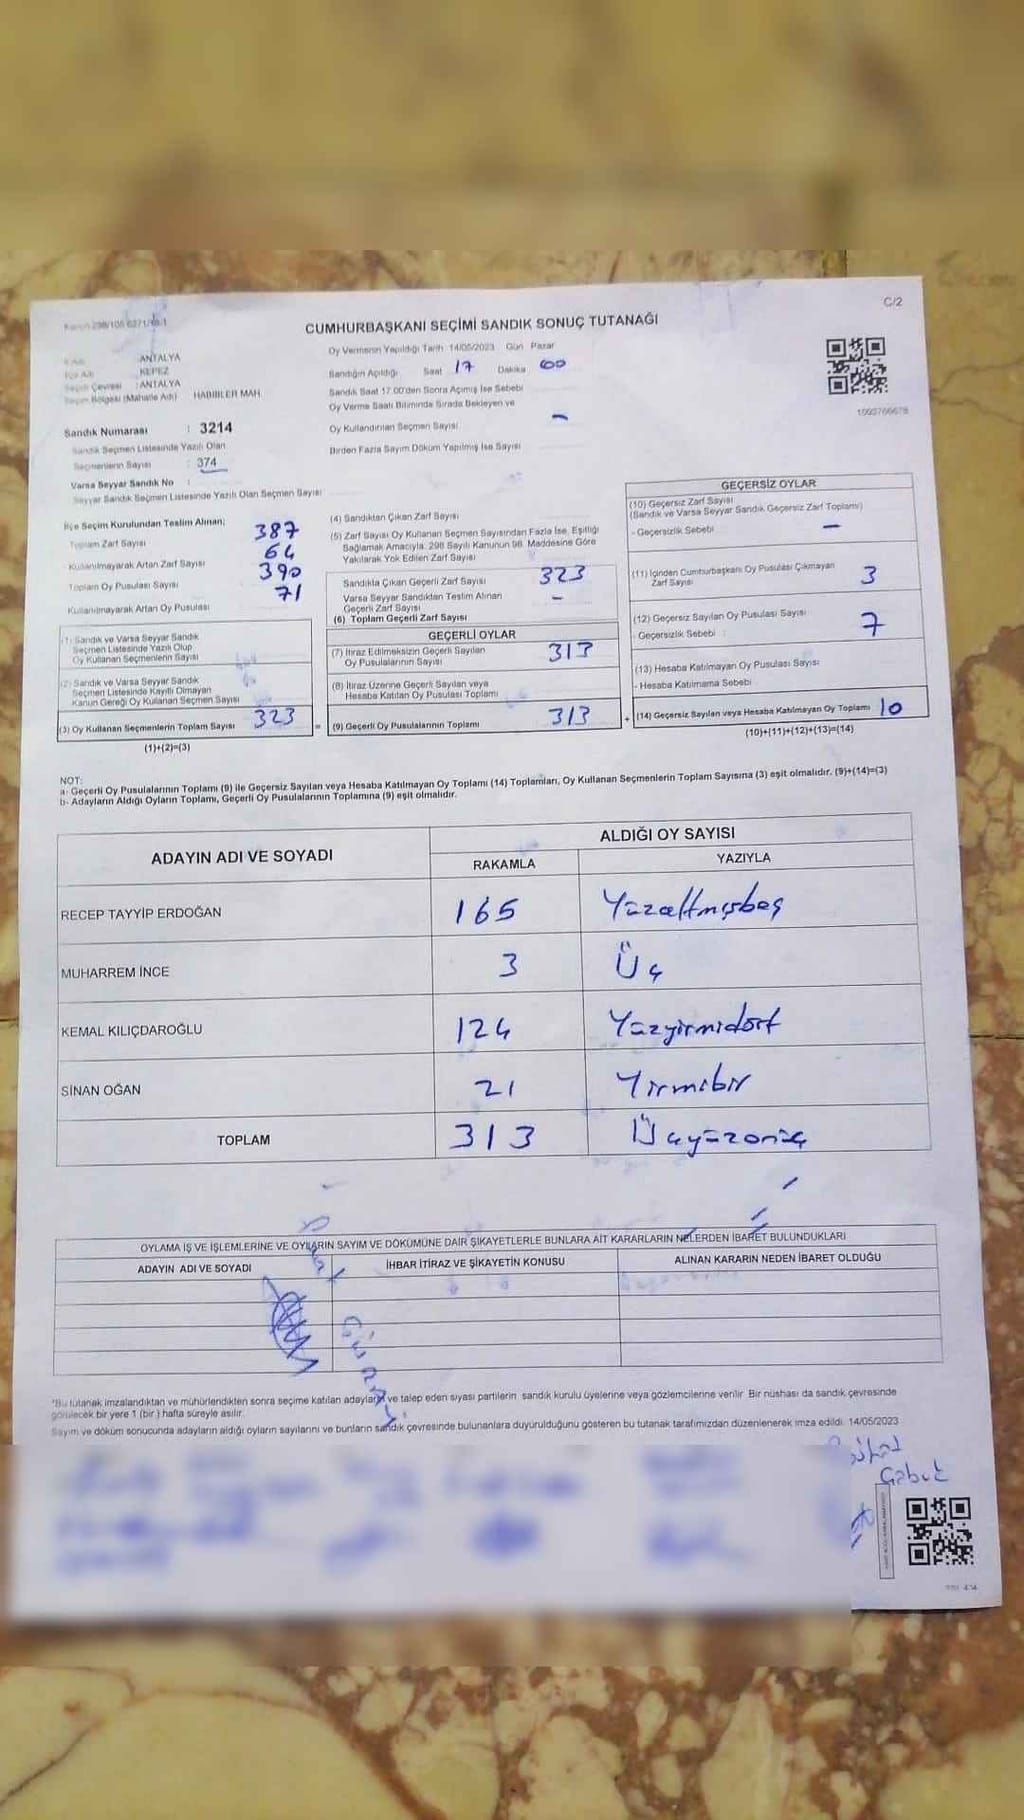 C/2
CUMHURBAŞKANI SEÇİMİ SANDIK SONUÇ TUTANAĞI
: ANTALYA
: KEPEZ
Seçim Çevresi : ANTALYA
Seçim Bölgesi (Mahalle Adı) HABİBLER MAH.
Sandık Numarası : 3214
Sandık Seçmen Listesinde Yazılı Olan
Seçmenlerin Sayısı : 374
Varsa Seyyar Sandık No :
Seyyar Sandık Seçmen Listesinde Yazılı Olan Seçmen Sayısı
Oy Vermenin Yapıldığı Tarih : 14/05/2023 Gün : Pazar
Sandığın Açıldığı Saat 17 Dakika 00
Sandık Saat 17.00'den Sonra Açılmış İse Sebebi
Oy Verme Saati Bitiminde Sırada Bekleyen ve
Oy Kullandırılan Seçmen Sayısı -
Birden Fazla Sayım Döküm Yapılmış İse Sayısı
1003766678
İlçe Seçim Kurulundan Teslim Alınan;
Toplam Zarf Sayısı 387
Kullanılmayarak Artan Zarf Sayısı 64
Toplam Oy Pusulası Sayısı 390
Kullanılmayarak Artan Oy Pusulası 71
(1) Sandık ve Varsa Seyyar Sandık
Seçmen Listesinde Yazılı Olup
Oy Kullanan Seçmenlerin Sayısı
(2) Sandık ve Varsa Seyyar Sandık
Seçmen Listesinde Kayıtlı Olmayan
Kanun Gereği Oy Kullanan Seçmen Sayısı
(3) Oy Kullanan Seçmenlerin Toplam Sayısı 323 =
(1)+(2)=(3)
(4) Sandıktan Çıkan Zarf Sayısı
(5) Zarf Sayısı Oy Kullanan Seçmen Sayısından Fazla İse, Eşitliği
Sağlamak Amacıyla, 298 Sayılı Kanunun 98. Maddesine Göre
Yakılarak Yok Edilen Zarf Sayısı
Sandıkta Çıkan Geçerli Zarf Sayısı 323
Varsa Seyyar Sandıktan Teslim Alınan
Geçerli Zarf Sayısı -
(6) Toplam Geçerli Zarf Sayısı
GEÇERLİ OYLAR
(7) İtiraz Edilmeksizin Geçerli Sayılan
Oy Pusulalarının Sayısı 313
(8) İtiraz Üzerine Geçerli Sayılan veya
Hesaba Katılan Oy Pusulası Toplamı
(9) Geçerli Oy Pusulalarının Toplamı 313 +
GEÇERSİZ OYLAR
(10) Geçersiz Zarf Sayısı
(Sandık ve Varsa Seyyar Sandık Geçersiz Zarf Toplamı)
- Geçersizlik Sebebi : -
(11) İçinden Cumhurbaşkanı Oy Pusulası Çıkmayan
Zarf Sayısı 3
(12) Geçersiz Sayılan Oy Pusulası Sayısı
- Geçersizlik Sebebi : 7
(13) Hesaba Katılmayan Oy Pusulası Sayısı
- Hesaba Katılmama Sebebi :
(14) Geçersiz Sayılan veya Hesaba Katılmayan Oy Toplamı 10
(10)+(11)+(12)+(13)=(14)
NOT:
a- Geçerli Oy Pusulalarının Toplamı (9) ile Geçersiz Sayılan veya Hesaba Katılmayan Oy Toplamı (14) Toplamları, Oy Kullanan Seçmenlerin Toplam Sayısına (3) eşit olmalıdır. (9)+(14)=(3)
b- Adayların Aldığı Oyların Toplamı, Geçerli Oy Pusulalarının Toplamına (9) eşit olmalıdır.
ADAYIN ADI VE SOYADI
ALDIĞI OY SAYISI
RAKAMLA YAZIYLA
RECEP TAYYİP ERDOĞAN 165 Yüzaltmışbeş
MUHARREM İNCE 3 Üç
KEMAL KILIÇDAROĞLU 124 Yüzyirmidört
SİNAN OĞAN 21 Yirmibir
TOPLAM 313 Üçyüzonüç
OYLAMA İŞ VE İŞLEMLERİNE VE OYLARIN SAYIM VE DÖKÜMÜNE DAİR ŞİKAYETLERLE BUNLARA AİT KARARLARIN NELERDEN İBARET BULUNDUKLARI
ADAYIN ADI VE SOYADI İHBAR İTİRAZ VE ŞİKAYETİN KONUSU ALINAN KARARIN NEDEN İBARET OLDUĞU
*Bu tutanak imzalandıktan ve mühürlendikten sonra seçime katılan adaylara ve talep eden siyasi partilerin sandık kurulu üyelerine veya gözlemcilerine verilir. Bir nüshası da sandık çevresinde
görülecek bir yere 1 (bir) hafta süreyle asılır.
Sayım ve döküm sonucunda adayların aldığı oyların sayılarını ve bunların sandık çevresinde bulunanlara duyurulduğunu gösteren bu tutanak tarafımızdan düzenlenerek imza edildi. 14/05/2023